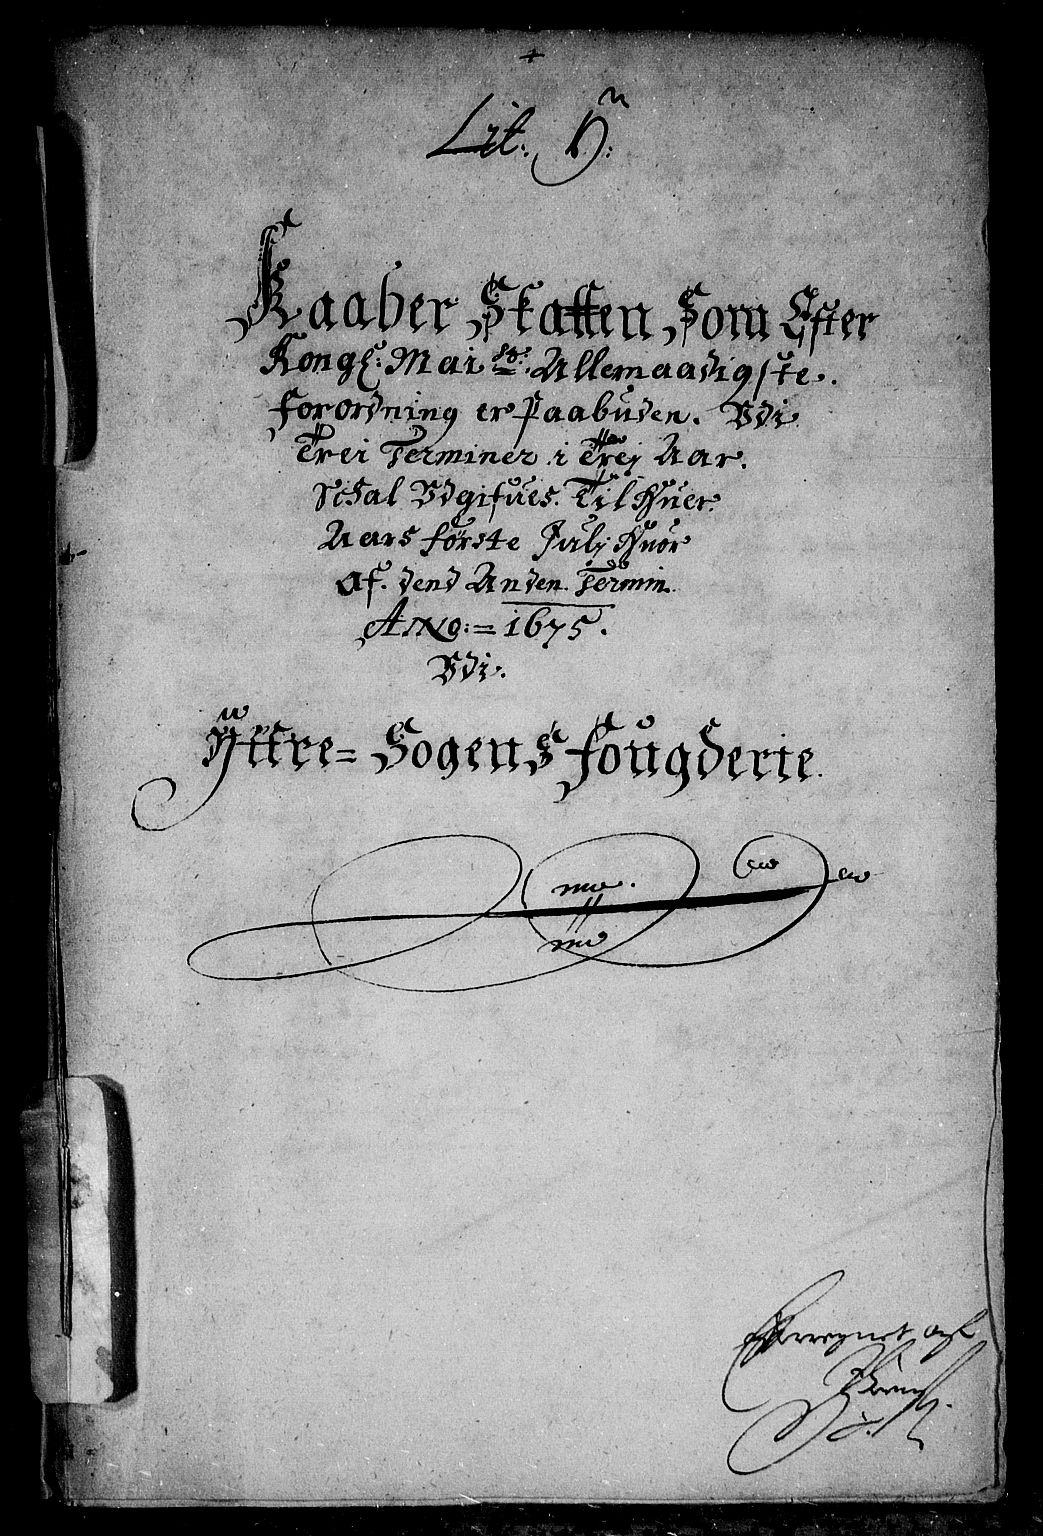 Lit. D:
Kaaber Skatten Som Efter
Kongl: Mai.ts: Allernaadigste.
forordning er Paabuden. Vdi
Trei Terminer i Trej Aar.
schal Vdgifues. Til Huer.
Aars förste Julj Huor
af. dend Anden. Termin.
ANNO:= 1675.
Vdi.
Yttre= Sogens fougderie.